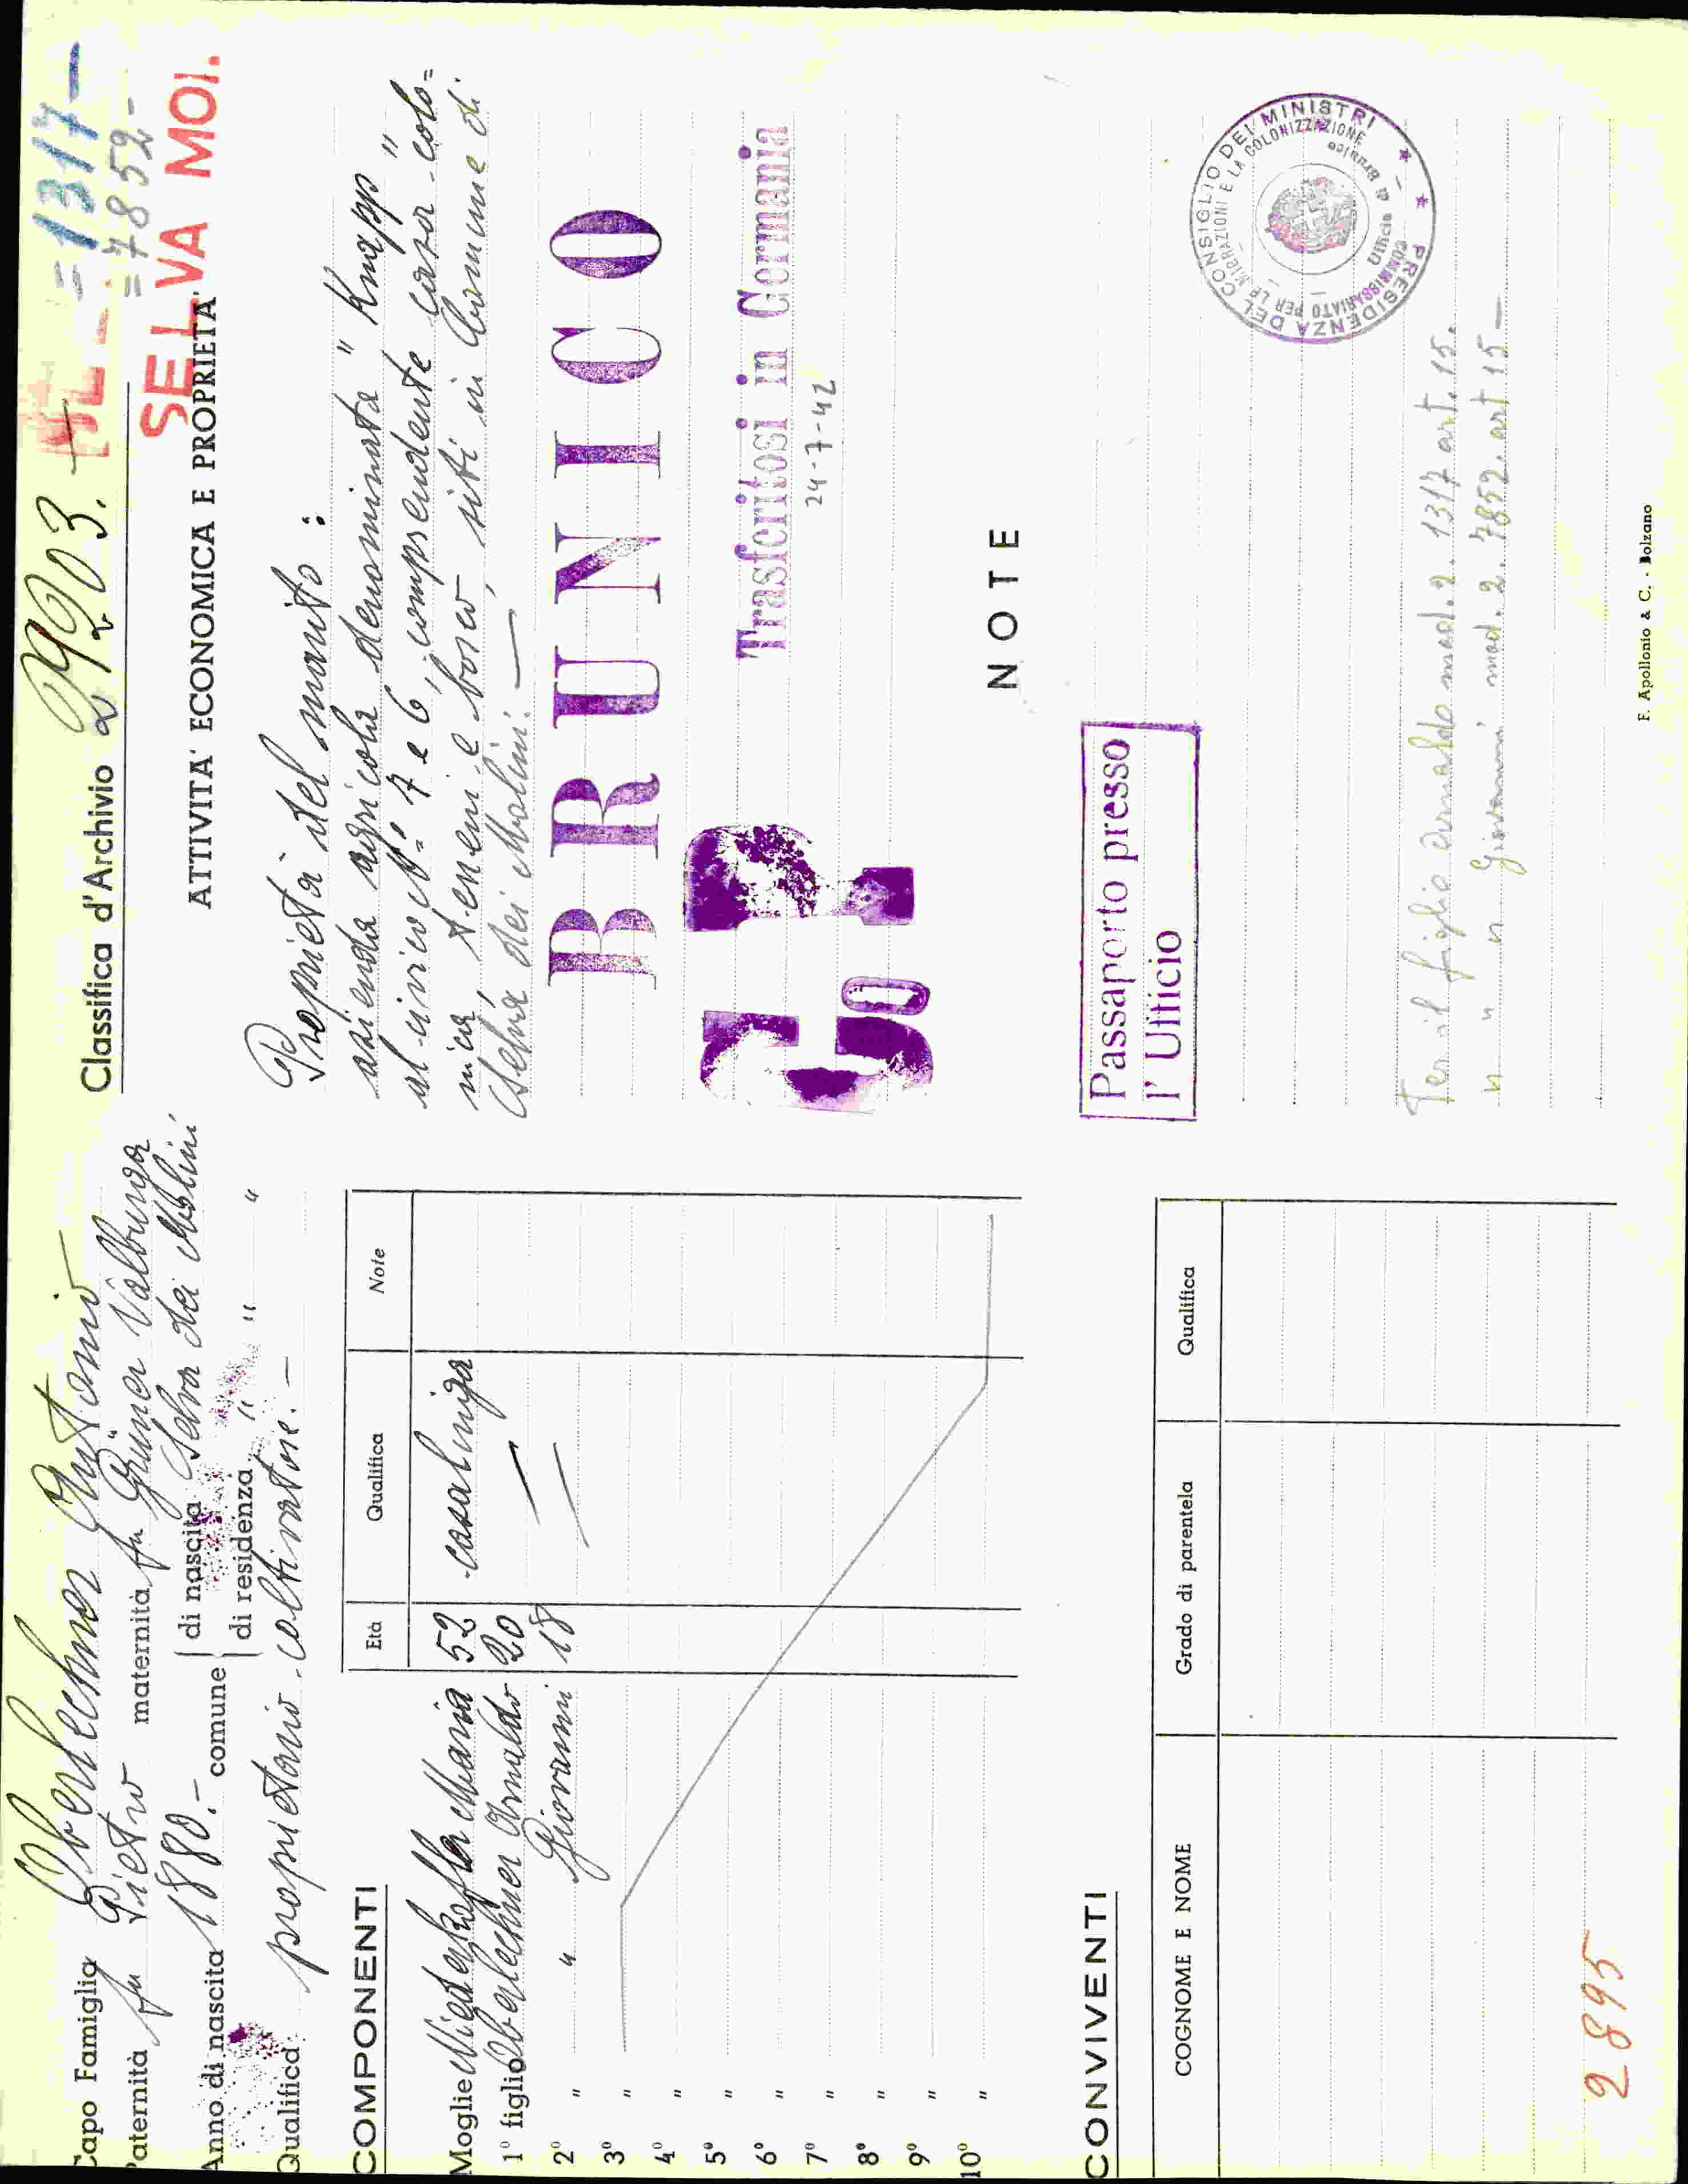 Capo Famiglia Oberlechner Antonio
Paternità fu Pietro maternità fu Grüner Valburga
Anno di nascita 1880.- comune { di nascita Selva dei Molini
di residenza " " "
Qualifica: proprietario-coltivatore.-
COMPONENTI
Età Qualifica Note
Moglie Niederkofler Maria 52 casalinga
1º figlio Oberlechner Arnaldo 20 —
2º " " Giovanni 18 —
3º "
4º "
5º "
6º "
7º "
8º "
9º "
10º "
CONVIVENTI
COGNOME E NOME Grado di parentela Qualifica
2895
Classifica d'Archivio 2903.-
= 1317 -
= 7852 -
SELVA MOI.
ATTIVITA' ECONOMICA E PROPRIETA'
Proprietà del marito:
azienda agricola denominata "Knapp"
al civico N.º 7 e 6, comprendente casa-colo=
nica, terreni e bosco, siti in Comune di
Selva dei Molini. —
BRUNICO
Trasferitosi in Germania
24-7-42
NOTE
Passaporto presso
l' Ufficio
PRESIDENZA DEL CONSIGLIO DEI MINISTRI
COMMISSARIATO PER LE MIGRAZIONI E LA COLONIZZAZIONE
Ufficio di Brunico
Per il figlio Arnaldo mod. 2. 1317 art. 15.
" " " Giovanni mod. 2. 7852. art 15 —
F. Apollonio & C. - Bolzano